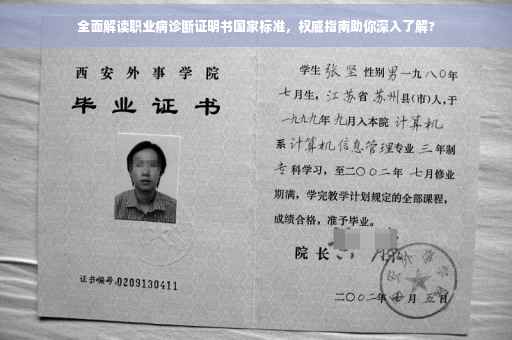 全面解读职业病诊断证明书国家标准，权威指南助你深入了解?
西安外事学院
毕业证书
证书编号:0209130411
学生 张坚 性别 男 一九八〇年
七月生，江苏省 苏州县(市)人,于
一九九九年 九月入本院 计算机
系 计算机信息管理专业 三 年制
专科学习，至二〇〇二年 七月修业
期满，学完教学计划规定的全部课程，
成绩合格，准予毕业。
院长
二〇〇二年 七 月 五 日